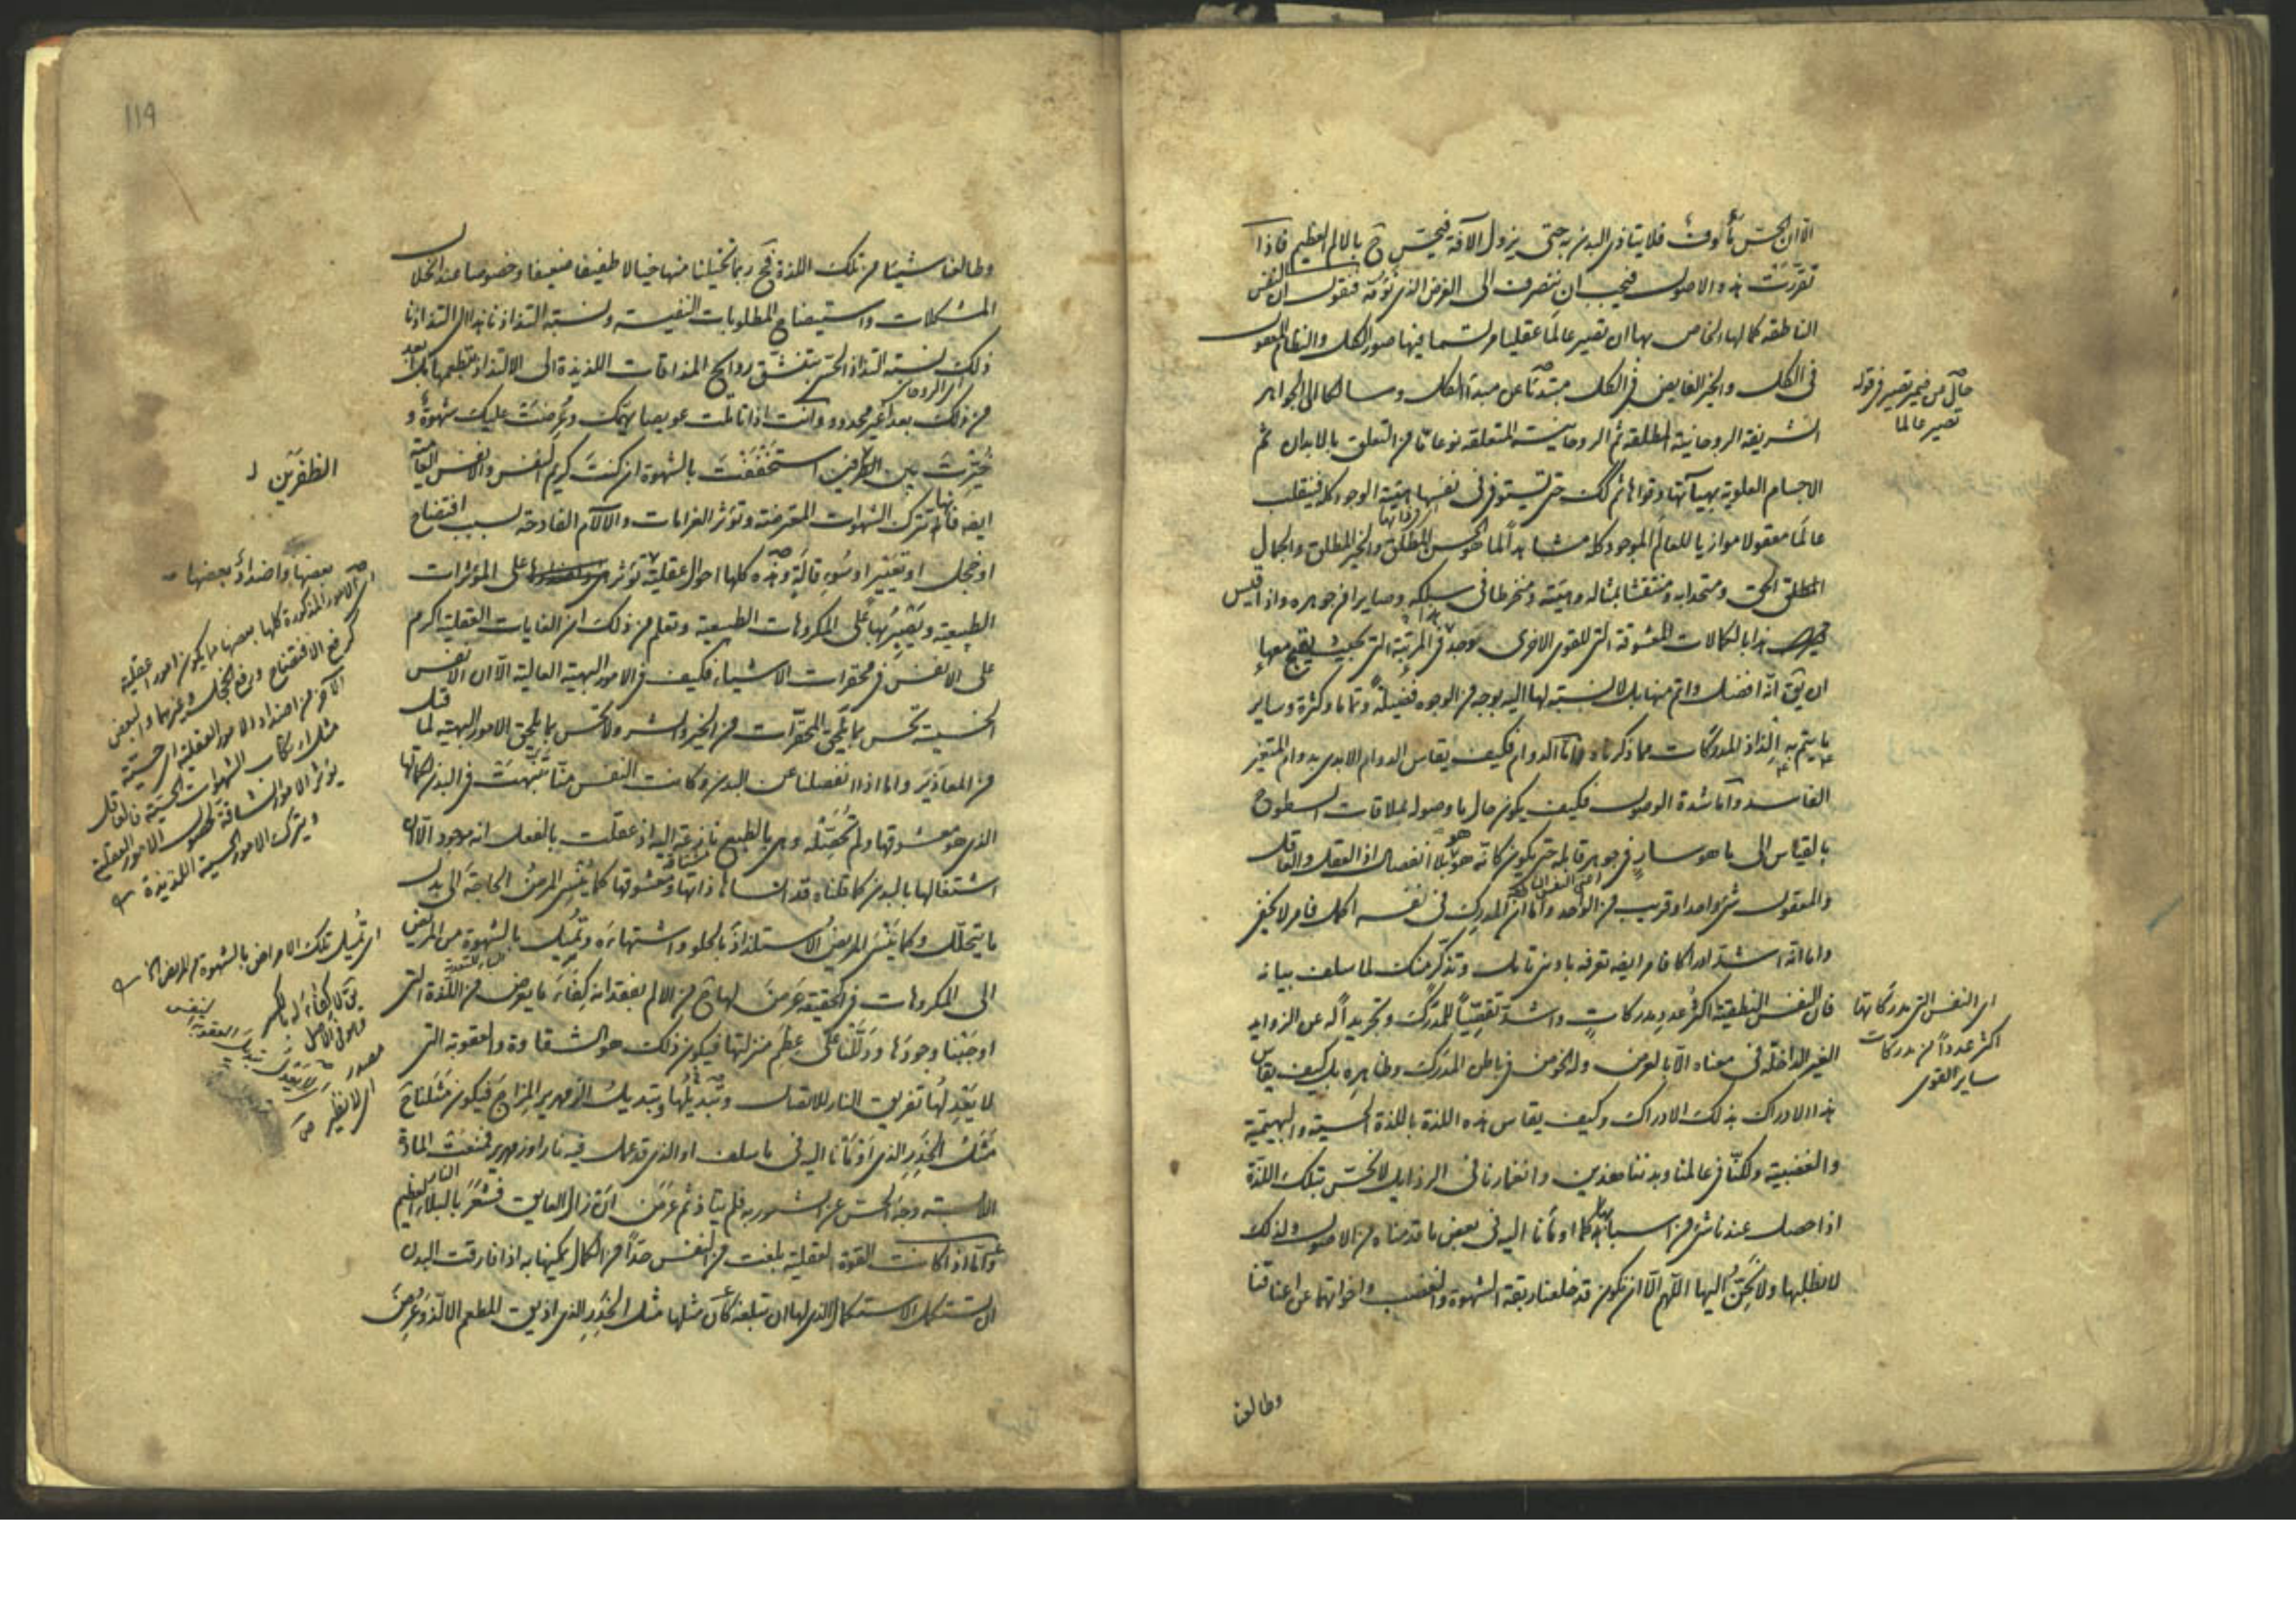 الا ان الحس مأوف فلا يتاذى البدن به حتى يزول الآفة فيحس ح بالالم العظيم فاذا
تقررت هذه الاصول فيجب ان ننصرف الى الغرض الذى نؤمه فنقول ان النفس
الناطقة كمالها الخاص بها ان تصير عالما عقليا مرتسما فيها صور الكل والنظام المعقول
فى الكل والخير الفايض فى الكل مبتدئا عن مبدأ الكل وسالكا الى الجواهر
الشريفة الروحانية المطلقة ثم الروحانية المتعلقة نوعا ما من التعلق بالابدان ثم
الاجسام العلوية بهيآتها وقواها ثم كك حتى تستوفى فى نفسها هيئة الوجود كله فينقلب
عالما معقولا موازيا للعالم الموجود كله مشاهدا لما هو الحسن المطلق والخير المطلق والجمال
المطلق الحق ومتحدا به ومنتقشا بمثاله وهيئته ومنخرطا فى سلكه وصايرا من جوهره واذا قيس
هذا بالكمالات المعشوقة التى للقوى الاخرى يوجد فى المرتبة التى بحيث يقبح معها
ان يق انه افضل واتم منها بل لا نسبة لها اليه بوجه من الوجوه فضيلة وتماما وكثرة وساير
ما يتم به الذاذ المدركات مما ذكرناه واما الدوام فكيف يقاس الدوام الابدى بدوام المتغير
الفاسد واما شدة الوصول فكيف يكون حال ما وصوله بملاقات السطوح
بالقياس الى ما هو سار فى جوهر قابله حتى يكون كانه هو هو بلا انفصال اذ العقل والعاقل
والمعقول شئ واحد او قريب من الواحد واما ان المدرك فى نفسه اكمل فامر لا يخفى
واما انه اشد ادراكا فامر ايضا تعرفه بادنى تامل وتذكر منك لما سلف بيانه
فان النفس النطقية اكثر عدد مدركات واشد تقصيا للمدرك وتجريدا له عن الزوايد
الغير الداخلة فى معناه الا بالعرض وله الخوض فى باطن المدرك وظاهره بل كيف يقاس
هذا الادراك بذلك الادراك وكيف يقاس هذه اللذة باللذة الحسية والبهيمية
والغضبية ولكنا فى عالمنا وبدننا هذين وانغمارنا فى الرذايل لا نحس بتلك اللذة
اذا حصل عندنا شئ من اسبابها كما اومأنا اليه فى بعض ما قدمناه من الاصول ولذلك
لا نطلبها ولا نحن اليها اللهم الا ان نكون قد خلعنا ربقة الشهوة والغضب واخواتهما عن اعناقنا
وطالعنا
حال من ضمير تصير فى قوله
تصير عالما
اى النفس التى مدركاتها
اكثر عددا من مدركات
ساير القوى
119
وطالعنا شيئا من تلك اللذة فح ربما تخيلنا منها خيالا طفيفا ضعيفا وخصوصا عند انحلال
المشكلات واستيضاح المطلوبات النفيسة ونسبة التذاذنا هذا الى التذاذنا
ذلك نسبة التذاذ الحس بتنشق روايح المذاقات اللذيذة الى الالتذاذ بتطعمها بل ابعد
من ذلك بعدا غير محدود وانت اذا تاملت عويصا يهمك وعرضت عليك شهوة و
خيرت بين الطرفين استخففت بالشهوة ان كنت كريم النفس والانفس العامية
ايضا فانها تترك الشهوات المعترضة وتؤثر الغرامات والآلام الفادحة بسبب افتضاح
او خجل او تعيير او سوء قالة وهذه كلها احوال عقلية تؤثر على المؤثرات
الطبيعية ويصبر لها على المكروهات الطبيعية وتعلم من ذلك ان الغايات العقلية اكرم
على الانفس فى محقرات الاشياء فكيف فى الامور البهية العالية الا ان الانفس
الخسيسة تحس بما يلحق المحقرات من الخير والشر ولا تحس بما يلحق الامور البهية لما قيل
من المعاذير واما اذا انفصلنا عن البدن وكانت النفس منا تنبهت فى البدن لكمالها
الذى هو معشوقها ولم تحصله وهى بالطبع نازعة اليه اذ عقلت بالفعل انه موجود الا ان
اشتغالها بالبدن كما قلناه قد انساها ذاتها ومعشوقها كما ينسى المرض الحاجة الى بدل
ما يتحلل وكما ينسى المريض الاستلذاذ بالحلو واشتهاءه وتميل بالشهوة من المريض
الى المكروهات فى الحقيقة عرض لها ح من الالم بفقدانه كفاء ما يعرض من اللذة التى
اوجبنا وجودها ودللنا على عظم منزلتها فيكون ذلك هو الشقاوة والعقوبة التى
لا يعدلها تفريق النار للاتصال وتبديلها وتبديل الزمهرير المزاج فيكون مثلنا ح
مثل الخدر الذى اومأنا اليه فى ما سلف او الذى قد عمل فيه نار او زمهرير فمنعت المادة
الملابسة وجه الحس عن الشعور به فلم يتاذ ثم عرض ان زال العايق فشعر بالبلاء العظيم
واما اذا كانت القوة العقلية بلغت من النفس حدا من الكمال يمكنها به اذا فارقت البدن
ان تستكمل الاستكمال الذى لها ان تبلغه كان مثلها مثل الخدر الذى اذيق المطعم الالذ وعرض
الطرفين ل
بعضها واضداد بعضها
اى الامور المذكورة كلها بعضها ما يكون امورا عقلية
كرفع الافتضاح ورفع الخجل وغيرهما والبعض
الآخر من اضداد الامور العقلية اى حسية
مثل ارتكاب الشهوات الحسية فالعاقل
يؤثر الامور الشاقة لحصول الامور العقلية
ويترك الامور الحسية اللذيذة
اى تميل تلك الامراض بالشهوة من المريض الخ
يق لا كفاء له بالكسر
وهو فى الاصل
مصدر
اى لا نظير ص